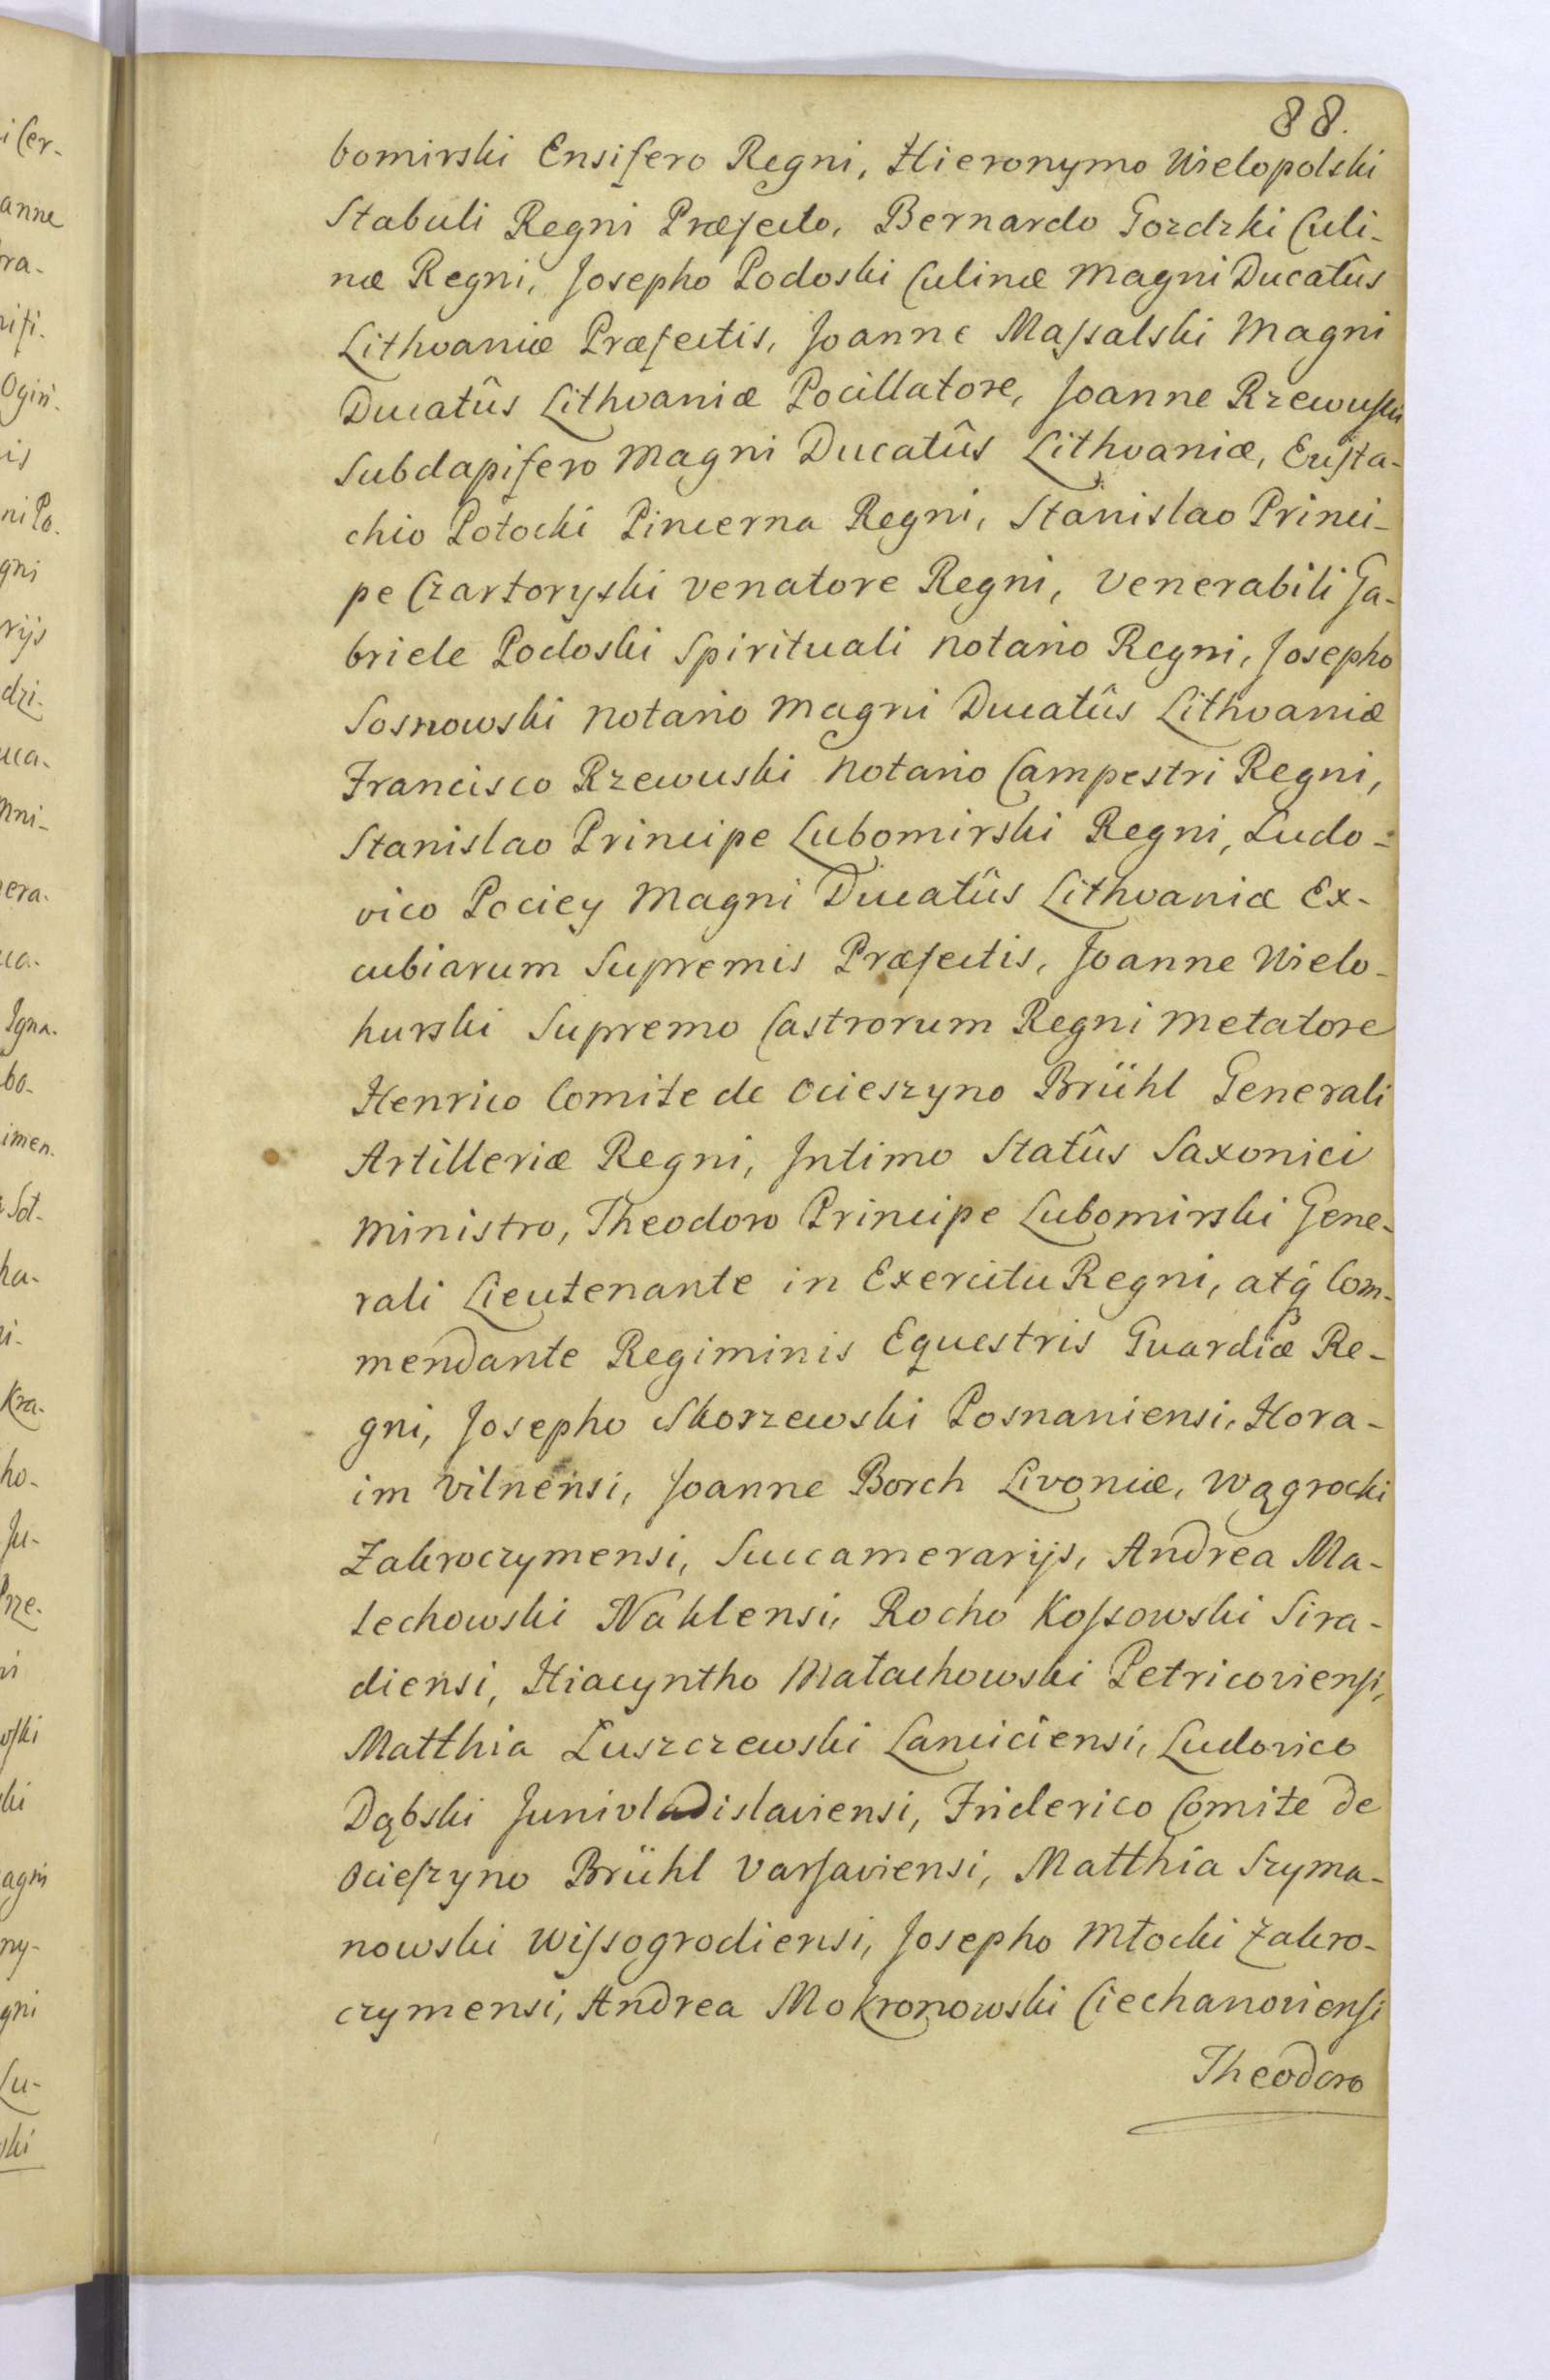 88.
bomirski Ensifero Regni, Hieronymo Wielopolski
Stabuli Regni Præfecto, Bernardo Gozdzki Culi-
næ Regni, Josepho Podoski Culinæ Magni Ducatûs
Lithvaniæ Præfectis, Joanne Maſsalski Magni
Ducatûs Lithvaniæ Pocillatore, Joanne Rzewuſki
Subdapifero Magni Ducatûs Lithvaniæ, Euſta-
chio Potocki Pincerna Regni, Stanislao Princi-
pe Czartoryski Venatore Regni, Venerabili Ga-
briele Podoski Spirituali Notario Regni, Josepho
Sosnowski Notario Magni Ducatûs Lithvaniæ
Francisco Rzewuski Notario Campestri Regni,
Stanislao Principe Lubomirski Regni, Ludo=
vico Pociey Magni Ducatûs Lithvaniæ Ex-
cubiarum Supremis Præfectis, Joanne Wielo-
hurski Supremo Castrorum Regni Metatore
Henrico Comite de Ocieszyno Brühl Generali
Artilleriæ Regni, Intimo Statûs Saxonici
Ministro, Theodoro Principe Lubomirski Gene-
rali Lieutenante in Exercitu Regni, atq́ Com-
mendante Regiminis Equestris Guardiæ Re-
gni, Josepho Skorzewski Posnaniensi, Hora-
im Vilnensi, Joanne Borch Livoniæ, Wągrocki
Zakroczymensi, Succamerarijs, Andrea Ma-
lechowski Naklensi, Rocho Koſsowski Sira-
diensi, Hiacyntho Małachowski Petricovienſi,
Matthia Łuszczewski Lanciciensi, Ludovico
Dąbski Junivladislaviensi, Friderico Comite de
Ocieſzyno Brühl Varſaviensi, Matthia Szyma-
nowski Wiſsogrodiensi, Josepho Młocki Zakro-
czymensi, Andrea Mokronowski Ciechanovienſi
Theodoro